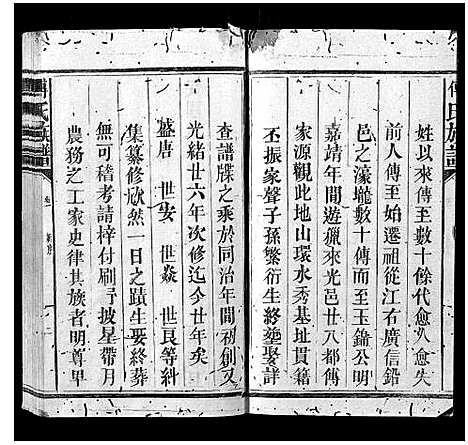 傅氏族譜
姓以來傳至數十餘代愈久愈失
前人傳至始遷祖從江右廣信鉛
邑之濠壠數十傳而至玉鏞公明
嘉靖年間遊獵來光邑廿八都傅
家源觀此地山環水秀基址貫籍
丕振家聲子孫繁衍生終塋娶詳
查譜牒之乘於同治年間初創又
光緒廿六年次修迄今廿年矣
盛唐 世安 世焱 世良等糾
集纂修欻然一日之蹟生娶終葬
無可稽考請梓付刷弓披星帶月
農務之工家史律其族者明尊卑
傅氏族譜